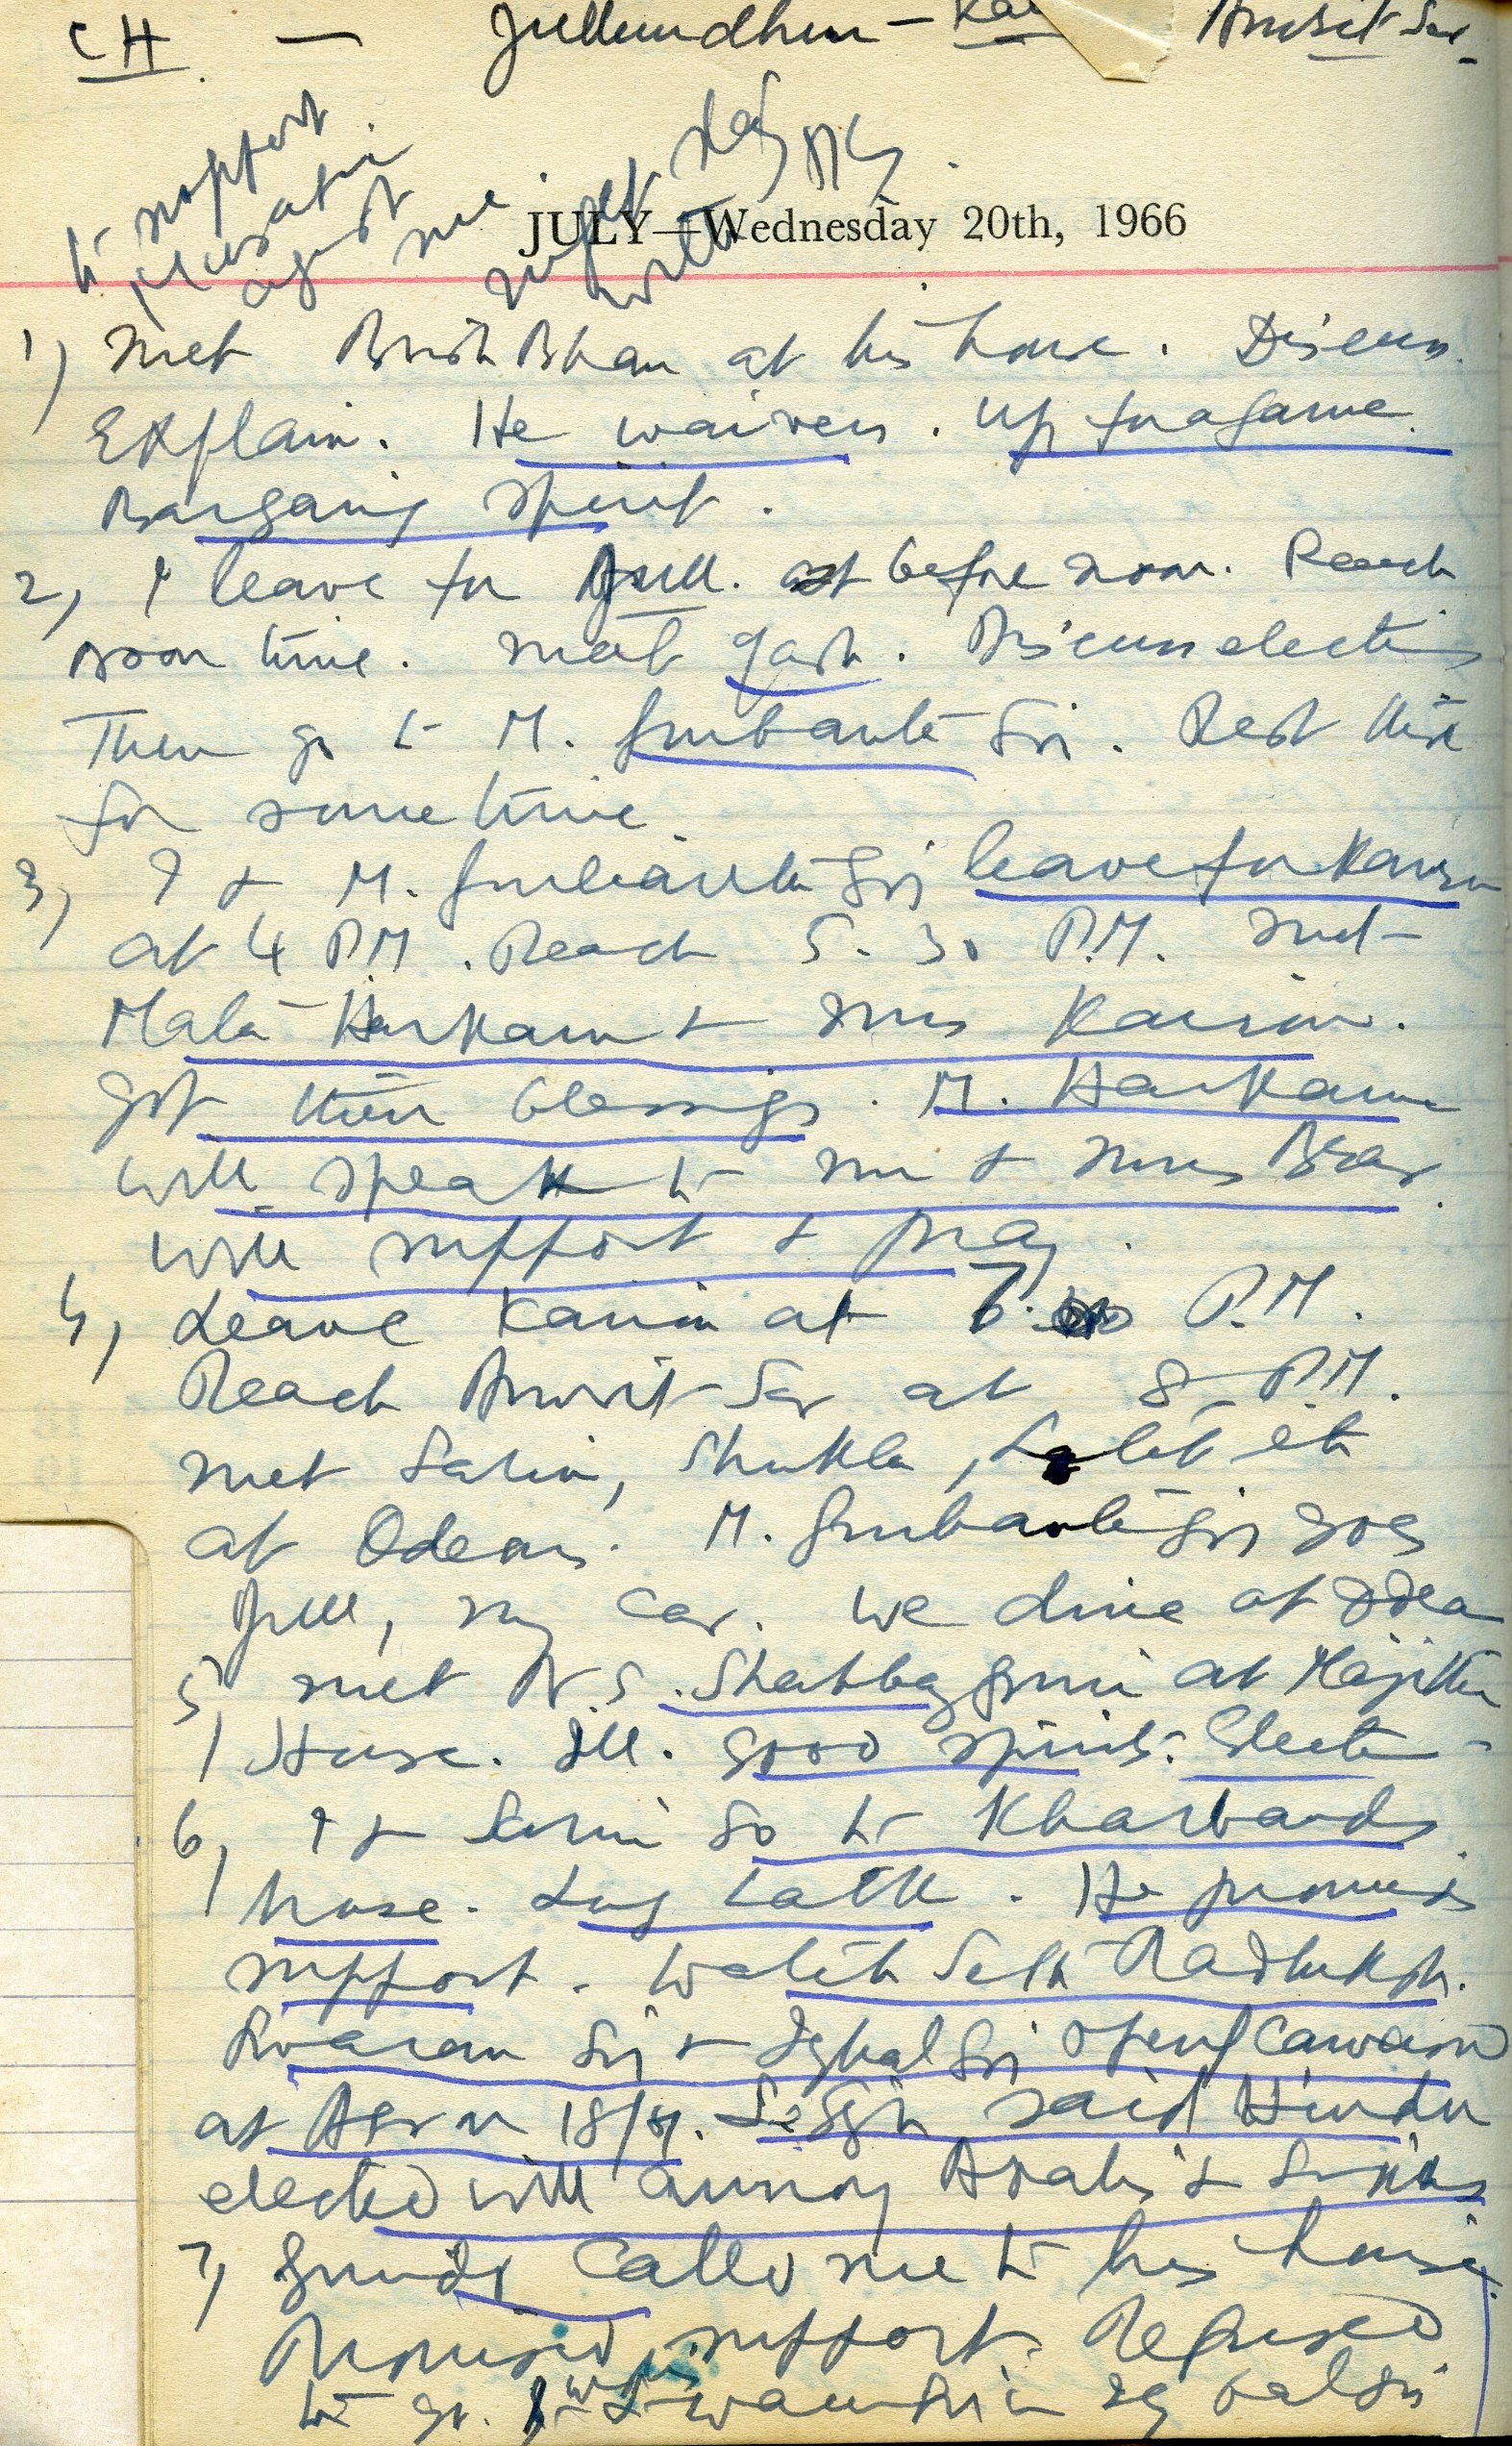 CH — Jullundhur — Amritsar
to support
against me
JULY—Wednesday 20th, 1966
1) Met Brish Bhan at his house. Discuss.
Explain. He waivers. Up for a game.
Bargaing spirit.
2, I leave for Jull. at before noon. Reach
noon time. Meet Yash. Discuss election
Then go to M. Gurbanta Sri. Rest there
for some time.
3, I & M. Gurbanta Sri leave for Kairon
at 4 P.M. Reach 5.30 P.M. Met
Mata Harkaur & Mrs Kairon.
Got their blessings. M. Harkaur
will speak to me & Mrs Brar.
will support & pray.
4, Leave Kairon at P.M.
Reach Amritsar at 8 P.M.
Met Sarin, Shukla, Lalit etc
at Odeon. M. Gurbanta Sri goes
Jull, my car. We dine at Odeon
5, Met at Majitha
House. Ill. Good spirits. Election
6, I & Sarin go to Kharbands
house. Long talk. He promises
support. Seth Radhukrh.
Swaran Sri & Iqbal Sri openly canvassed
at Agr on 18/7. said Hindu
elected will annoy Akalis & Sikhs
7, called me to his house.
Promised support. Refused
to go. Iqbal Sri